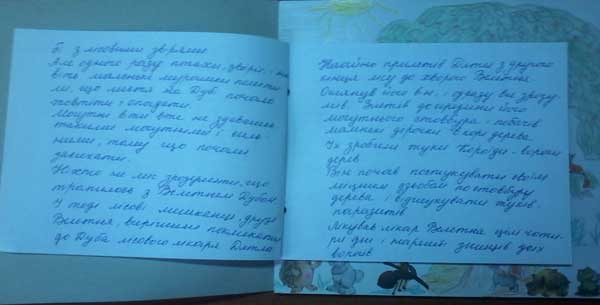 б з лісовими звірями
Але одного разу птахи, звірі, і
віть маленькі мурашки поміти
ли, що листя на Дубі почало
жовтіти і опадати.
Могутні віти вже не здавались
такими могутніми і силь-
ними, тому що почали
засихати.
Ніхто не міг зрозуміти, що
трапилось з Велетнем Дубом
І тоді лісові мешканці, друзі
Велетня, вирішили покликати
до Дуба лісового лікаря Дятла
Негайно прилетів Дятел з другого
кінця лісу до хворого Велетня.
Оглянув його він, і одразу він зрозу
мів. Злетів до середини його
могутнього стовбура і побачив
маленькі дірочки в корі дерева.
Їх зробили жуки короїди - вороги
дерев
Він почав постукувати своїм
міцним дзьобом по стовбуру
дерева і відшукувати жуків-
паразитів
Лікував лікар Велетня цілі чоти-
ри дні і нарешті знищив усіх
ворогів